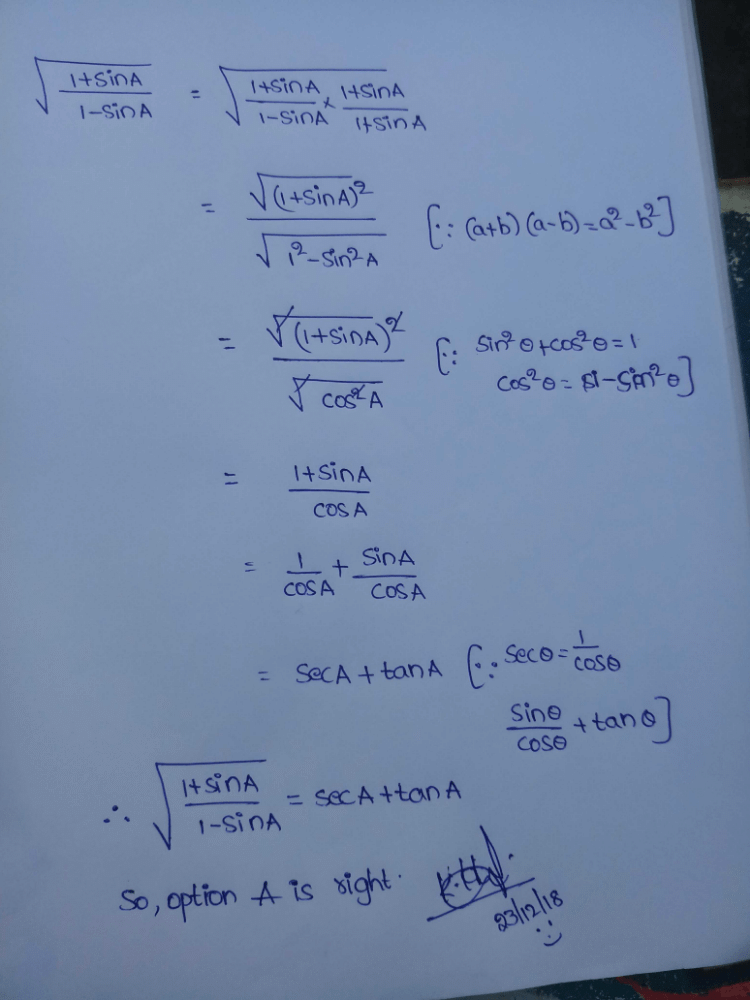 √((1+sinA)/(1-sinA)) = √((1+sinA)/(1-sinA) × (1+sinA)/(1+sinA))
= √(1+sinA)²/√(1²-sin²A) [∵ (a+b)(a-b)=a²-b²]
= √(1+sinA)²/√cos²A [∵ sin²θ+cos²θ=1
cos²θ = 1-sin²θ]
= (1+sinA)/cosA
= 1/cosA + sinA/cosA
= secA + tanA [∵ secθ = 1/cosθ
sinθ/cosθ + tanθ]
∴ √((1+sinA)/(1-sinA)) = secA+tanA
So, option A is right.
23/12/18